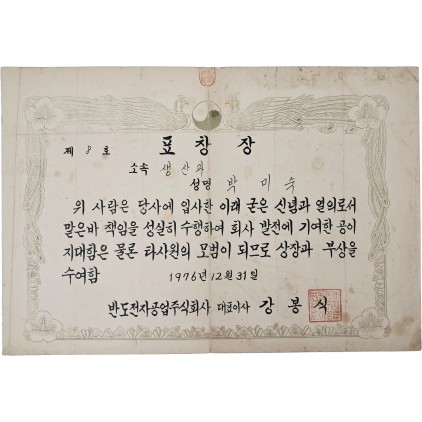 표창장
제 8 호
소속 생산과
성명 박미숙
위 사람은 당사에 입사한 이래 굳은 신념과 열의로서
맡은바 책임을 성실히 수행하여 회사 발전에 기여한 공이
지대함은 물론 타사원의 모범이 되므로 상장과 부상을
수여함
1976년 12월 31일
반도전자공업주식회사 대표이사 강봉식